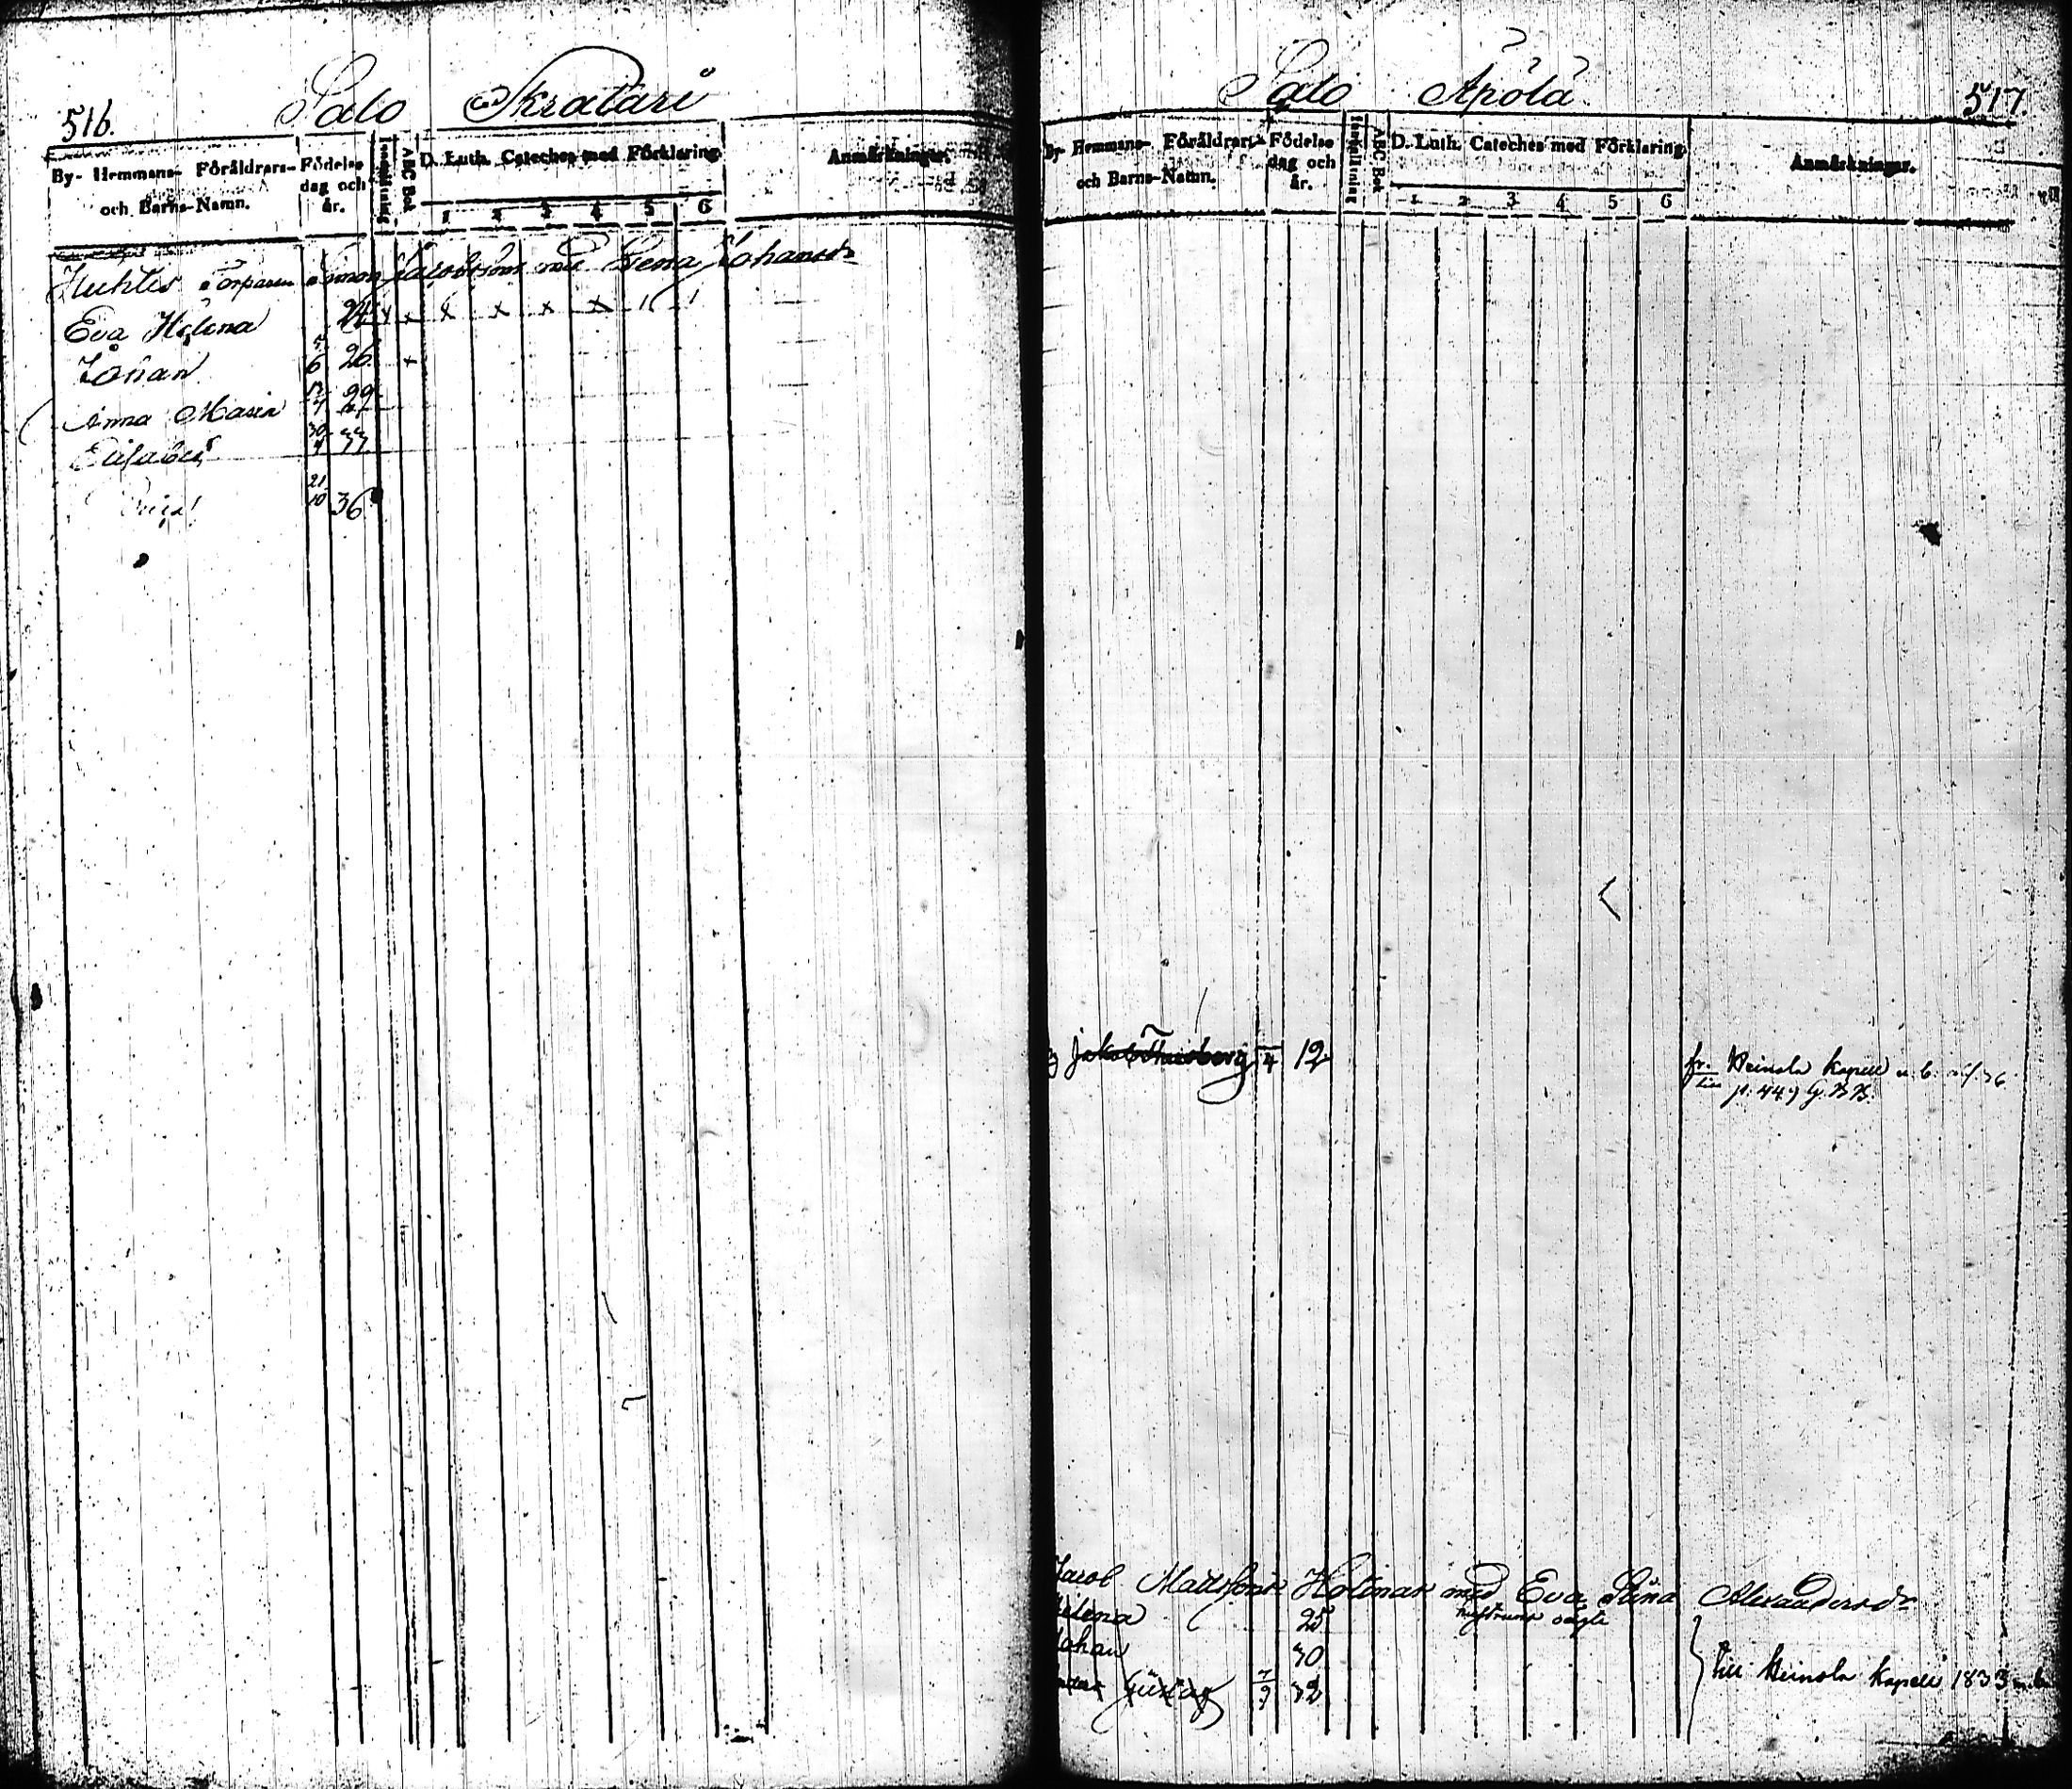 516.
Salo Skratari
By- Hemmans- Föräldrars- och Barns-Namn.
Födelse dag och år.
Innanläsning
ABC Bok
D. Luth. Cateches med Förklaring
1 2 3 4 5 6
Anmärkningar.
Huhtis Torparen Simon Jacobsson med Lena Johansdr
Eva Helena 24 x x x x x x 1 1
Johan 5/6 26 x
Anna Maria 29
Elisabet 30/4 33
21/10 36
517.
Salo
By- Hemmans- Föräldrars- och Barns-Namn.
Födelse dag och år.
Innanläsning
ABC Bok
D. Luth. Cateches med Förklaring
1 2 3 4 5 6
Anmärkningar.
Jakob 4 12 fr. Heinola kapell
p. 449
Jacob Mattsson Holmar med Eva Stina Alexandersdr
Helena 25 hustruns oägta
Johan 30
Gustaf 7/9 32 till Heinola kapell 1833